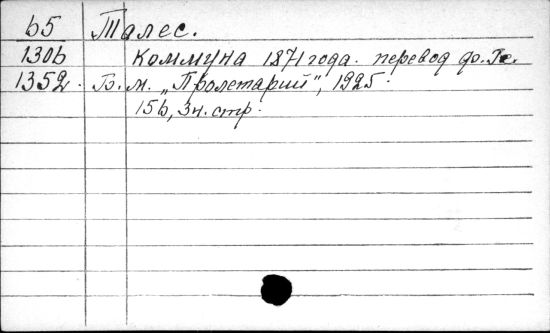 65 Талес.
1306 Коммуна 1871 года. перевод
1352. Б. м. „Пролетарий", 1925.
156, 3 н. стр.